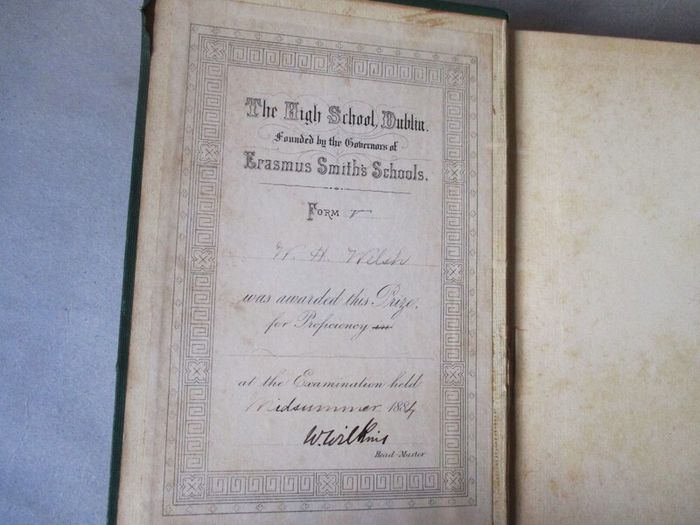 The High School, Dublin.
Founded by the Governors of
Erasmus Smith's Schools.
Form V
W. H. Welsh
was awarded this Prize,
for Proficiency in
at the Examination held
Midsummer 1884
W. Wilkins
Head-Master